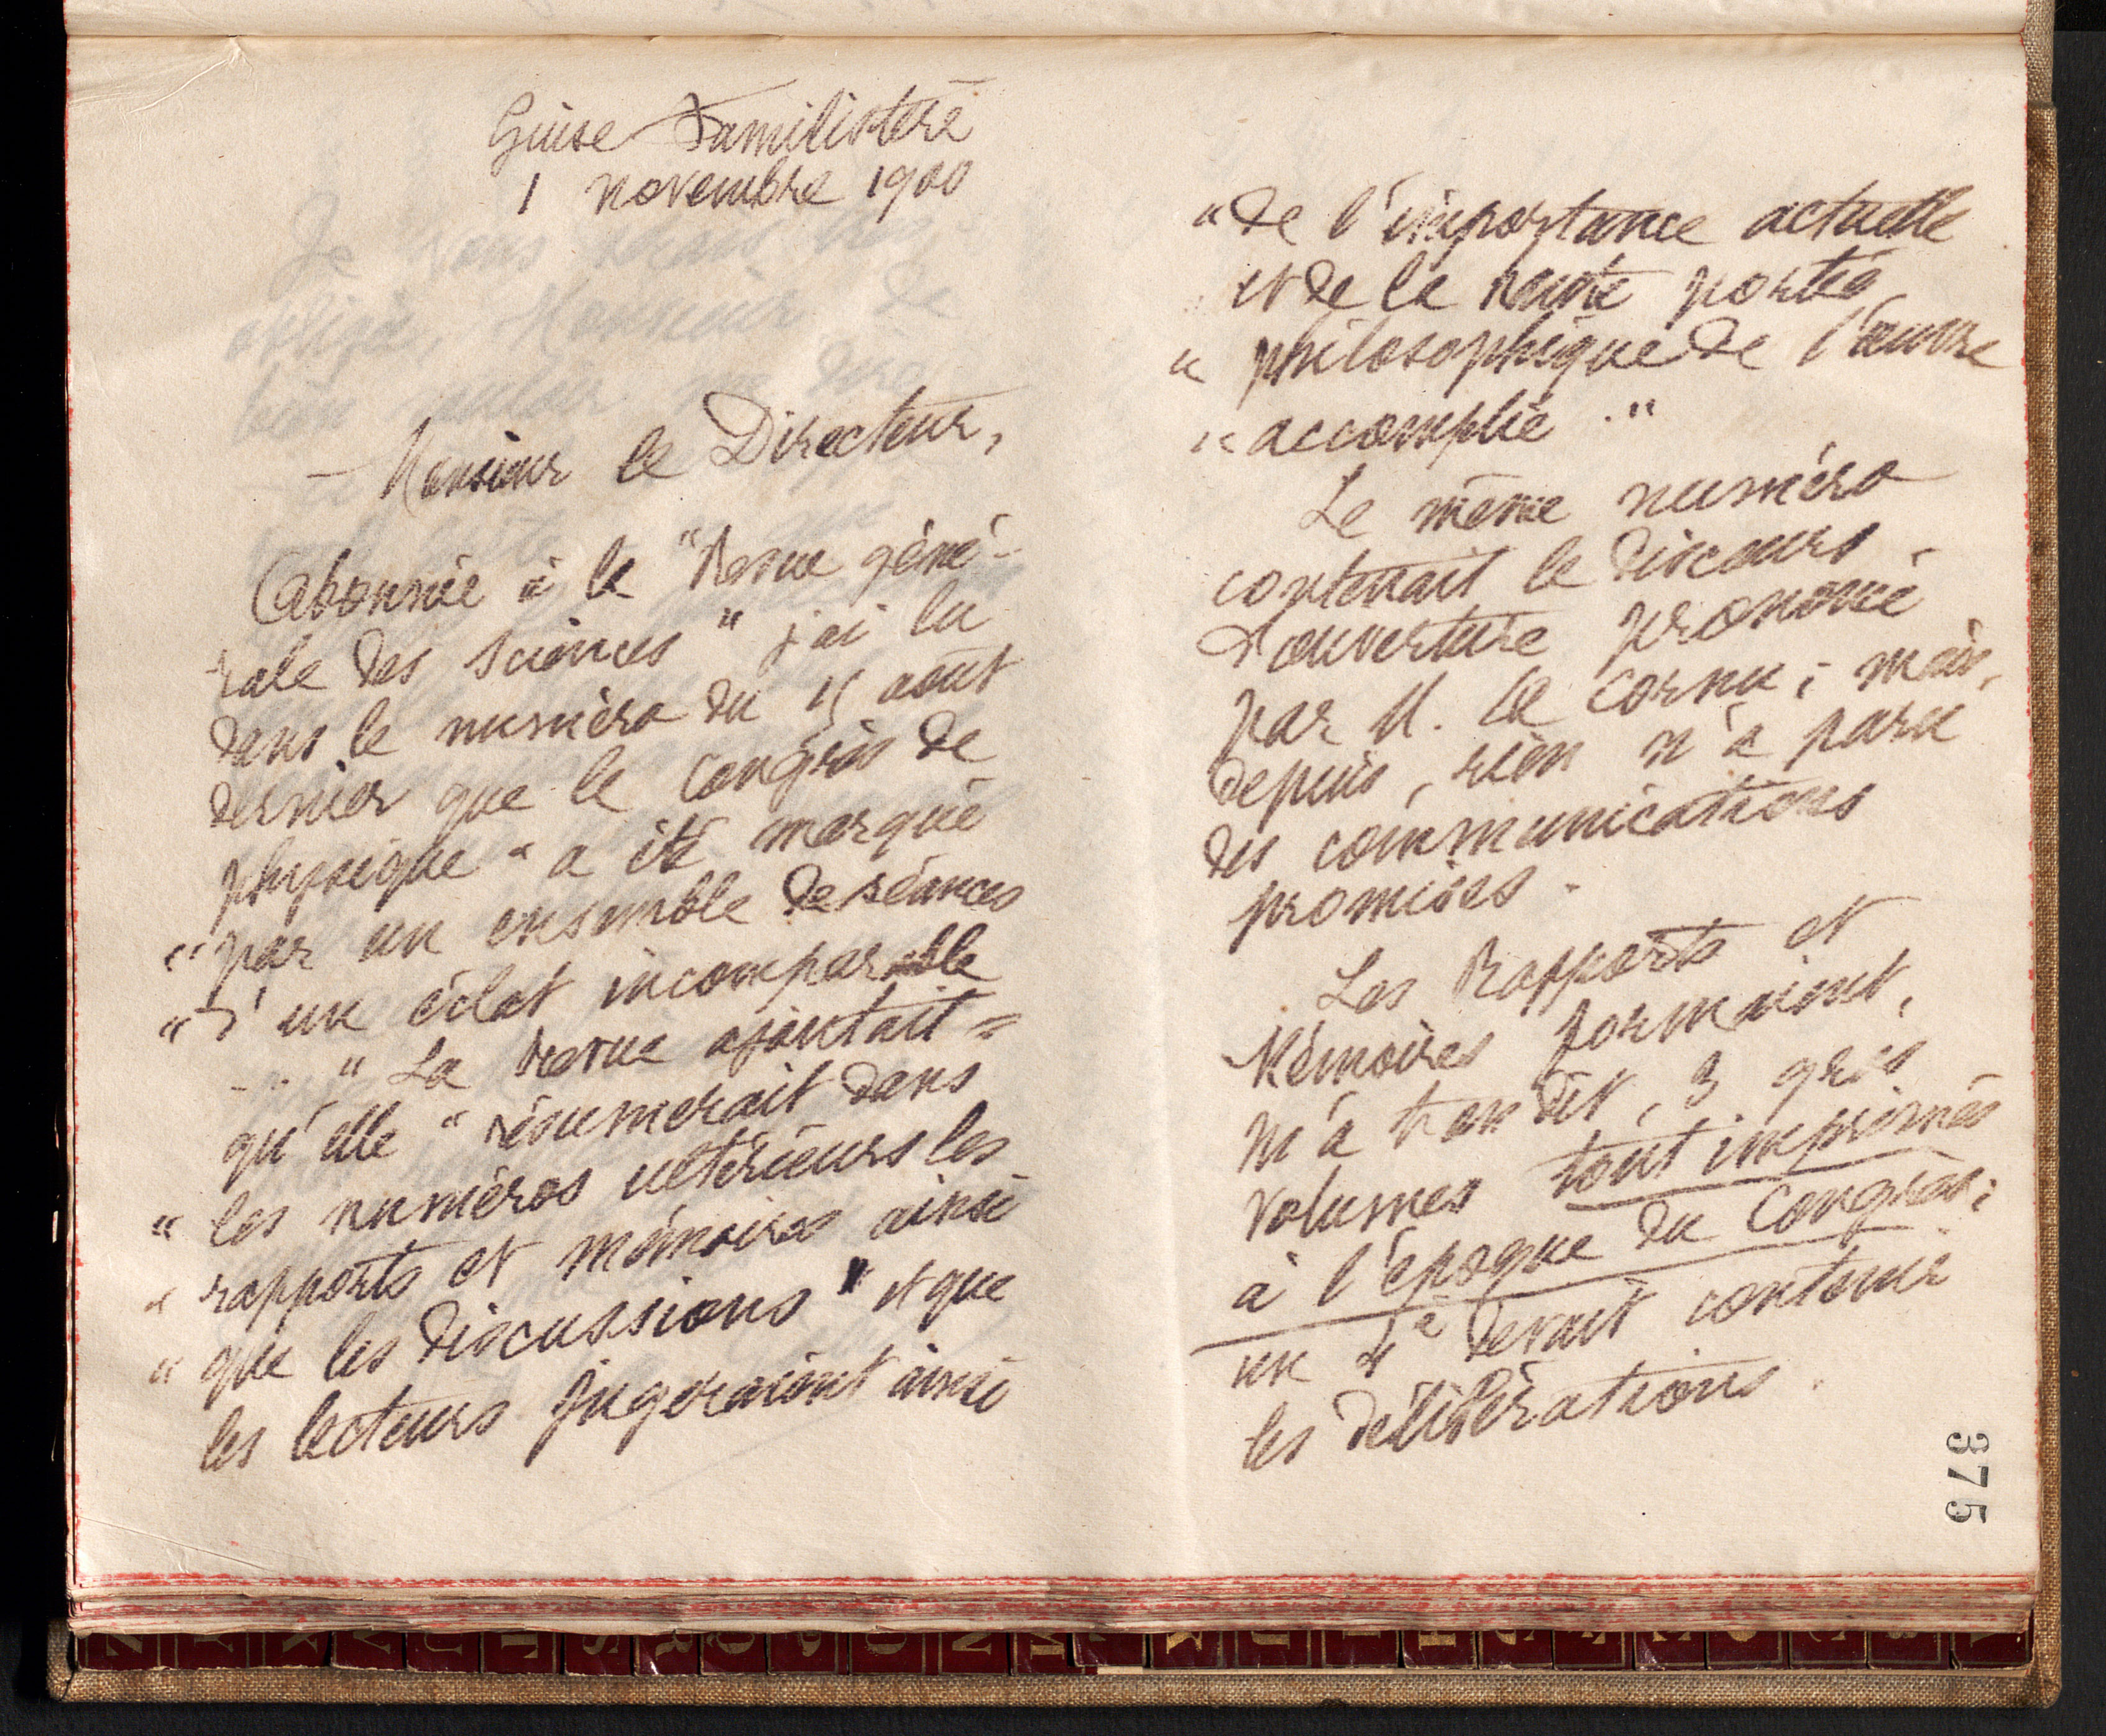 Guise Familistère
1 novembre 1900
Monsieur le Directeur,
Abonnée à la "Revue géné-
rale des Sciences" j'ai lu
dans le numéro du 15 août
dernier que le Congrès de
physique "a été marqué
"par un ensemble de séances
"d'un éclat incomparable
..." La Revue ajoutait =
qu'elle "résumerait dans
"les numéros ultérieurs les
"rapports et mémoires ainsi
"que les discussions" et que
les lecteurs jugeraient ainsi
"de l'importance actuelle
et de la haute portée
"philosophique de l'œuvre
"accomplie."
Le même numéro
contenait le discours
d'ouverture prononcé
par M. Le Cornu ; mais,
depuis, rien n'a paru
des communications
promises.
Les Rapports et
Mémoires formaient,
m'a-t-on dit, 3 gros
volumes tout imprimés
à l'époque du Congrès ;
un 4e devait contenir
les délibérations.
375
Z Y X V U T S R Q P O N M L K J I H G F E D C B A